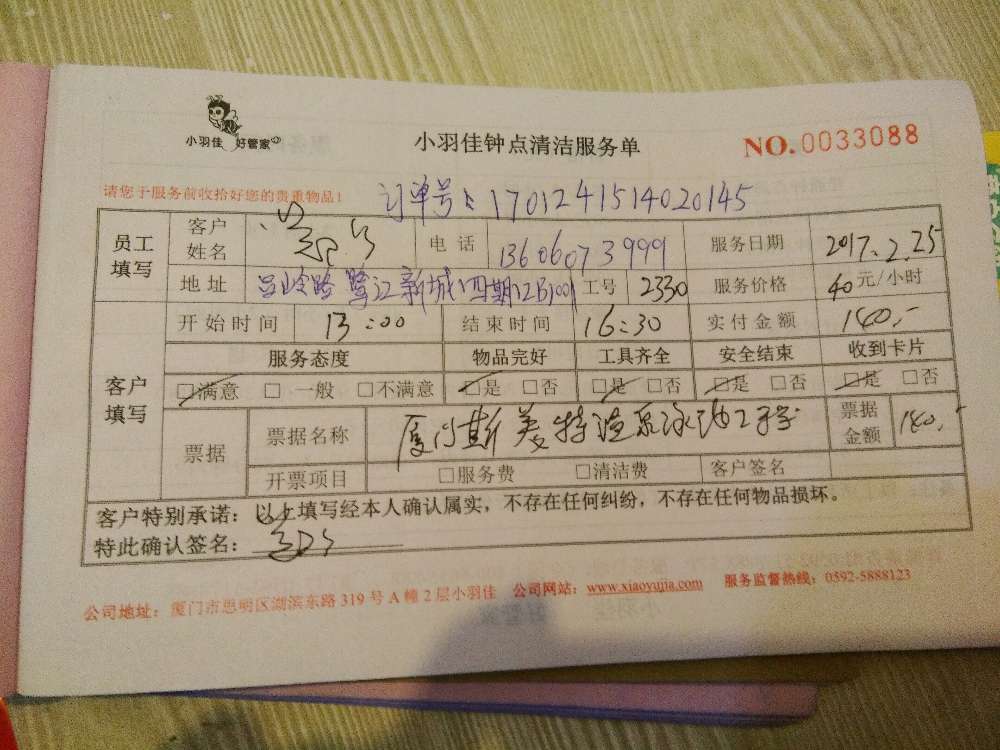 小羽佳 好管家
小羽佳钟点清洁服务单
NO.0033088
请您于服务前收拾好您的贵重物品!
订单号: 1701241514020145
员工填写 客户姓名 电话 13606073999 服务日期 2017.2.25
地址 吕岭路 鹭江新城四期12B1001 工号 2330 服务价格 40元/小时
开始时间 13:00 结束时间 16:30 实付金额 140.-
客户填写 服务态度 物品完好 工具齐全 安全结束 收到卡片
□满意 □一般 □不满意 □是 □否 □是 □否 □是 □否 □是 □否
票据 票据名称 厦门斯美特温泉泳池工程 票据金额 140.-
开票项目 □服务费 □清洁费 客户签名
客户特别承诺:以上填写经本人确认属实,不存在任何纠纷,不存在任何物品损坏。
特此确认签名:
公司地址:厦门市思明区湖滨东路319号A幢2层小羽佳 公司网站:www.xiaoyujia.com 服务监督热线:0592-5888123